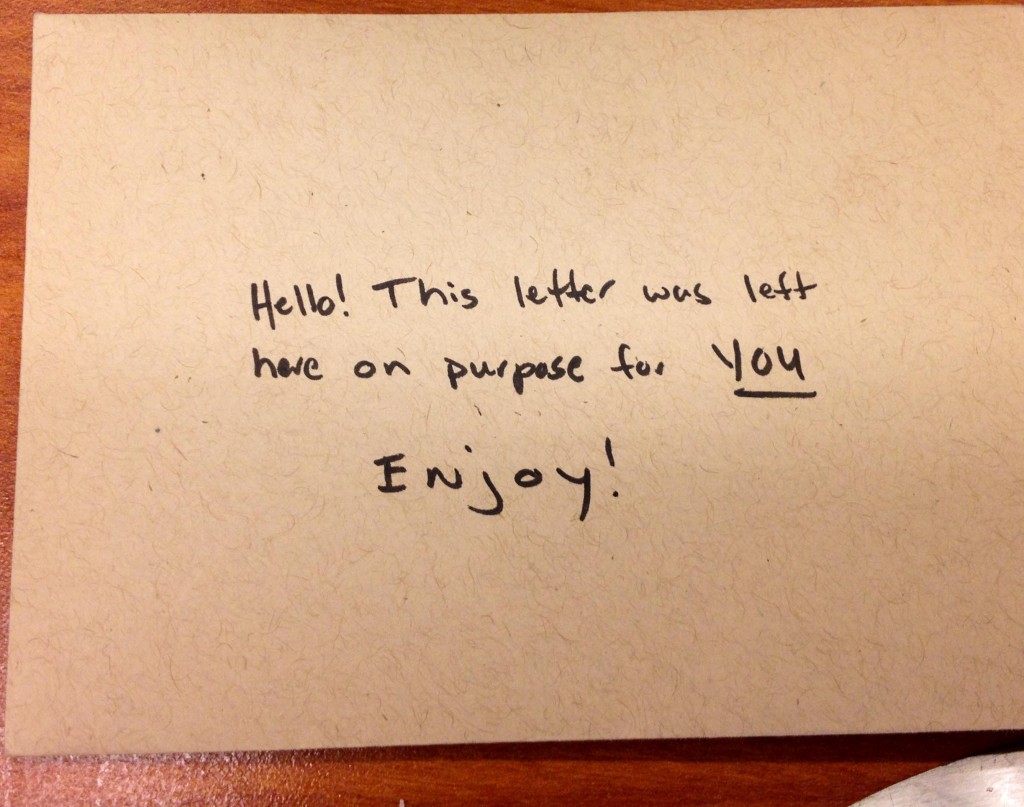 Hello! This letter was left
here on purpose for YOU
Enjoy!